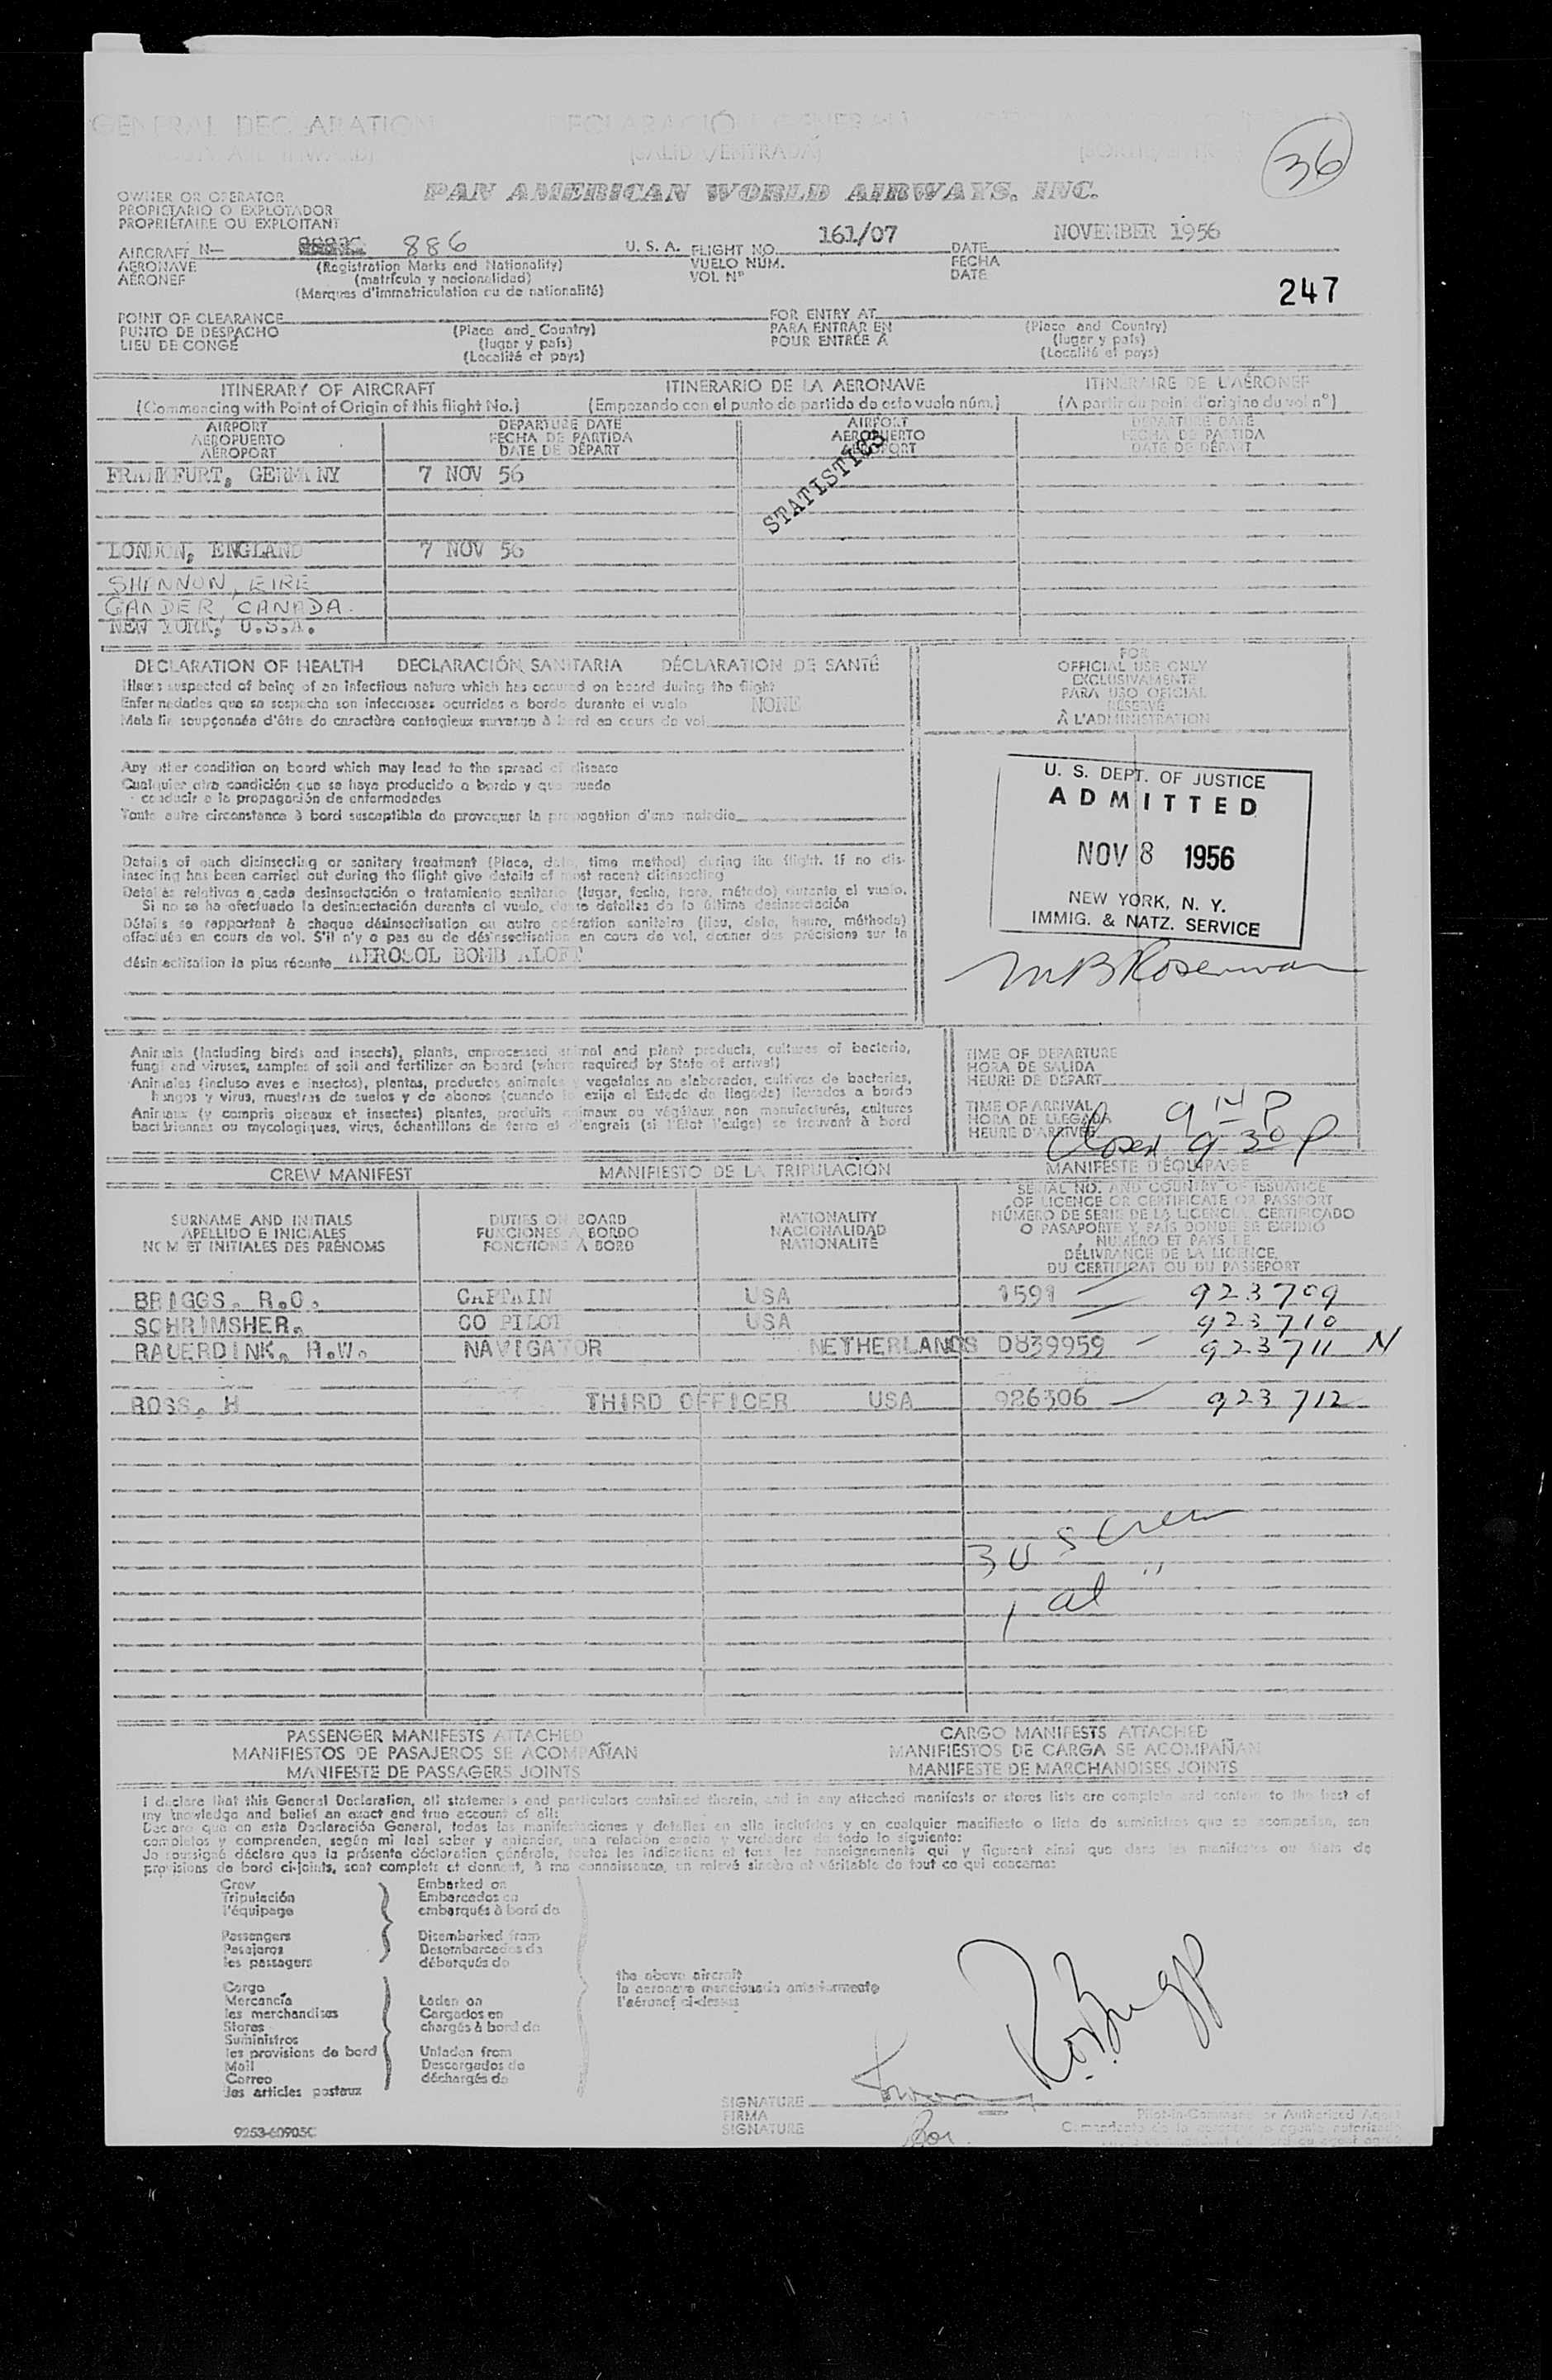 GENERAL DECLARATION
(SALIDA/ENTRADA)
36
PAN AMERICAN WORLD AIRWAYS, INC.
OWNER OR OPERATOR
PROPIETARIO O EXPLOTADOR
PROPRIÉTAIRE OU EXPLOITANT
AIRCRAFT N— 886 U. S. A. FLIGHT NO. 161/07 DATE NOVEMBER 1956
AERONAVE (Registration Marks and Nationality) VUELO NÚM. FECHA
AÉRONEF (matrícula y nacionalidad) VOL Nº DATE
(Marques d'immatriculation ou de nationalité)
247
POINT OF CLEARANCE FOR ENTRY AT
PUNTO DE DESPACHO (Place and Country) PARA ENTRAR EN (Place and Country)
LIEU DE CONGÉ (lugar y país) POUR ENTRÉE À (lugar y país)
(Localité et pays) (Localité et pays)
ITINERARY OF AIRCRAFT ITINERARIO DE LA AERONAVE ITINÉRAIRE DE L'AÉRONEF
(Commencing with Point of Origin of this flight No.) (Empezando con el punto de partida de esto vuelo núm.) (A partir du point d'origine du vol nº)
AIRPORT DEPARTURE DATE AIRPORT DEPARTURE DATE
AEROPUERTO FECHA DE PARTIDA AEROPUERTO FECHA DE PARTIDA
AÉROPORT DATE DE DÉPART AÉROPORT DATE DE DÉPART
STATISTICS
FRANKFURT, GERMANY 7 NOV 56
LONDON, ENGLAND 7 NOV 56
SHANNON, EIRE
GANDER, CANADA.
NEW YORK, U.S.A.
DECLARATION OF HEALTH DECLARACIÓN SANITARIA DÉCLARATION DE SANTÉ
Illness suspected of being of an infectious nature which has occured on board during the flight
Enfermedades que se sospecha son infecciosas ocurridas a bordo durante el vuelo NONE
Maladie soupçonnée d'être de caractère contagieux survenue à bord en cours de vol
Any other condition on board which may lead to the spread of disease
Cualquier otra condición que se haya producido a bordo y que puede
conducir a la propagación de enfermedades
Toute autre circonstance à bord susceptible de provoquer la propagation d'une maladie
Details of each disinsecting or sanitary treatment (Place, date, time method) during the flight. If no dis-
insecting has been carried out during the flight give details of most recent disinsecting
Detalles relativos a cada desinsectación o tratamiento sanitario (lugar, fecha, hora, método) durante el vuelo.
Si no se ha efectuado la desinsectación durante el vuelo, dense detalles de la última desinsectación
Détails se rapportant à chaque désinsectisation ou autre opération sanitaire (lieu, date, heure, méthode)
effectuée en cours de vol. S'il n'y a pas eu de désinsectisation en cours de vol, donner des précisions sur la
désinsectisation la plus récente AEROSOL BOMB ALOFT
FOR
OFFICIAL USE ONLY
EXCLUSIVAMENTE
PARA USO OFICIAL
RÉSERVÉ
À L'ADMINISTRATION
U. S. DEPT. OF JUSTICE
ADMITTED
NOV 8 1956
NEW YORK, N. Y.
IMMIG. & NATZ. SERVICE
Animals (including birds and insects), plants, unprocessed animal and plant products, cultures of bacteria,
fungi and viruses, samples of soil and fertilizer on board (where required by State of arrival)
Animales (incluso aves e insectos), plantas, productos animales y vegetales no elaborados, cultivos de bacterias,
hongos y virus, muestras de suelos y de abonos (cuando lo exija el Estado de llegada) llevados a bordo
Animaux (y compris oiseaux et insectes) plantes, produits animaux ou végétaux non manufacturés, cultures
bactériennes ou mycologiques, virus, échantillons de terre et d'engrais (si l'État l'exige) se trouvant à bord
TIME OF DEPARTURE
HORA DE SALIDA
HEURE DE DÉPART
TIME OF ARRIVAL 9 14 P
HORA DE LLEGADA
HEURE D'ARRIVÉE Closed 9 30 P
CREW MANIFEST MANIFIESTO DE LA TRIPULACIÓN MANIFESTE D'ÉQUIPAGE
SURNAME AND INITIALS
APELLIDO E INICIALES
NOM ET INITIALES DES PRÉNOMS
DUTIES ON BOARD
FUNCIONES A BORDO
FONCTIONS À BORD
NATIONALITY
NACIONALIDAD
NATIONALITÉ
SERIAL NO. AND COUNTRY OF ISSUANCE
OF LICENCE OR CERTIFICATE OR PASSPORT
NÚMERO DE SERIE DE LA LICENCIA, CERTIFICADO
O PASAPORTE Y PAÍS DONDE SE EXPIDIÓ
NUMÉRO ET PAYS DE
DÉLIVRANCE DE LA LICENCE,
DU CERTIFICAT OU DU PASSEPORT
BRIGGS, R.O. CAPTAIN USA 1591 923709
SCHRIMSHER, CO PILOT USA 923710
RAUERDINK, H.W. NAVIGATOR NETHERLANDS D839959 923711 N
ROSS, H THIRD OFFICER USA 986306 923712
3 US crew
1 al "
PASSENGER MANIFESTS ATTACHED CARGO MANIFESTS ATTACHED
MANIFIESTOS DE PASAJEROS SE ACOMPAÑAN MANIFIESTOS DE CARGA SE ACOMPAÑAN
MANIFESTE DE PASSAGERS JOINTS MANIFESTE DE MARCHANDISES JOINTS
I declare that this General Declaration, all statements and particulars contained therein, and in any attached manifests or stores lists are complete and contain to the best of
my knowledge and belief an exact and true account of all:
Declaro que en esta Declaración General, todas las manifestaciones y detalles en ella incluidos y en cualquier manifiesto o lista de suministros que se acompañan, son
completos y comprenden, según mi leal saber y entender, una relación exacta y verdadera de todo lo siguiente:
Je soussigné déclare que la présente déclaration générale, toutes les indications et tous les renseignements qui y figurent ainsi que dans les manifestes ou états de
provisions de bord ci-joints, sont complets et donnent, à ma connaissance, un relevé sincère et véritable de tout ce qui concerne:
Crew Embarked on
Tripulación Embarcados en
l'équipage embarqués à bord de
Passengers Disembarked from
Pasajeros Desembarcados de
les passagers débarqués de
the above aircraft
la aeronave mencionada anteriormente
l'aéronef ci-dessus
Cargo
Mercancía Laden on
les marchandises Cargados en
Stores chargés à bord de
Suministros
les provisions de bord Unladen from
Mail Descargados de
Correo déchargés de
les articles postaux
SIGNATURE
FIRMA Pilot-in-Command or Authorized Agent
SIGNATURE
9253-60905C